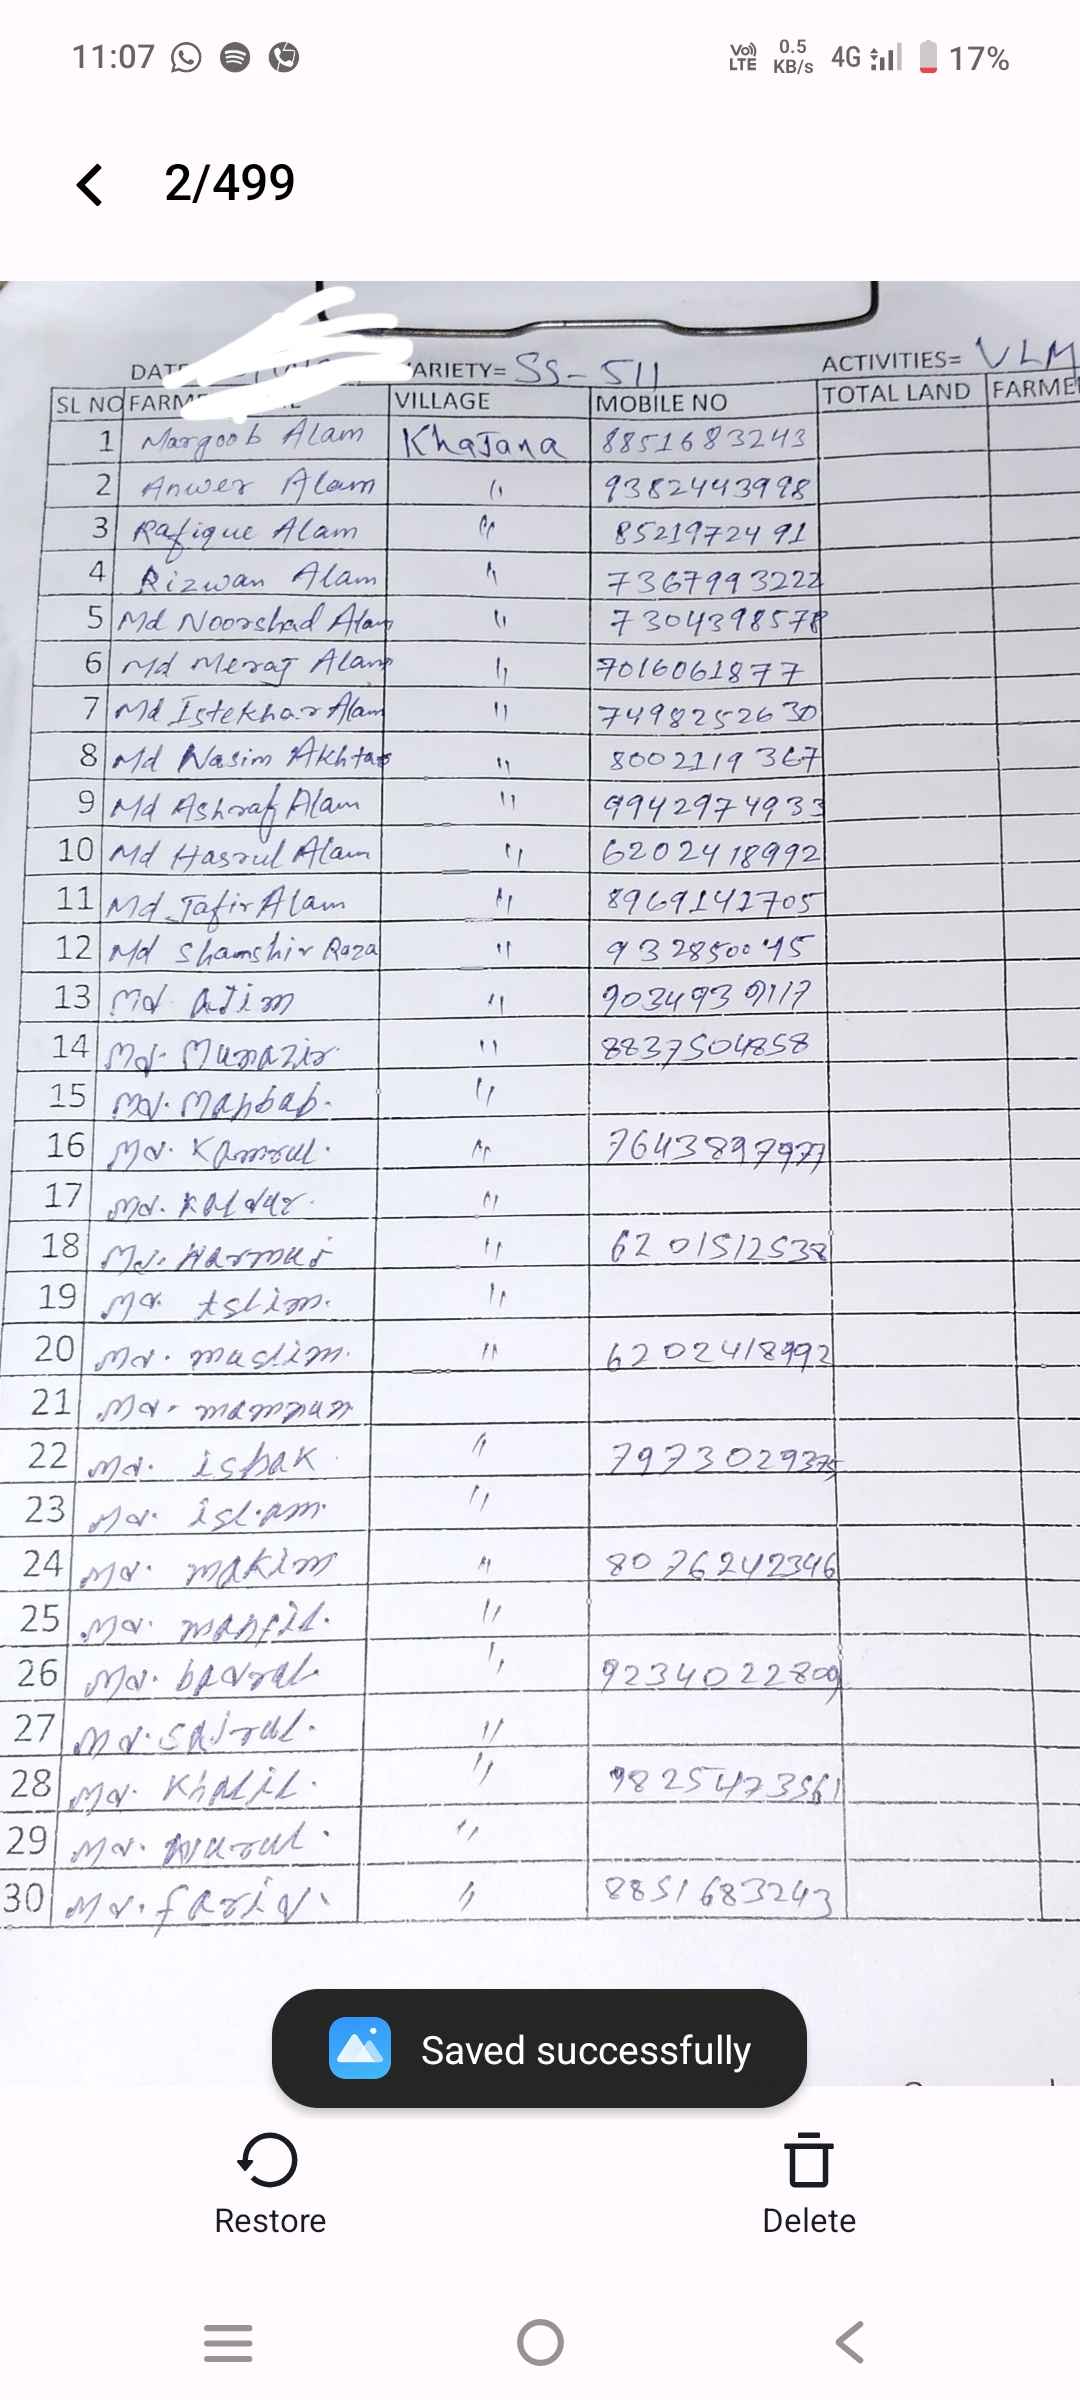 11:07 Vo) LTE 0.5 KB/s 4G 17%
2/499
DAT ARIETY= SS-511 ACTIVITIES= VLM
SL NO FARM VILLAGE MOBILE NO TOTAL LAND FARME
1 Margoob Alam Khajana 8851683243
2 Anwer Alam " 9382443998
3 Rafique Alam " 8521972491
4 Rizwan Alam " 7367993222
5 Md Noorshad Alam " 7304398578
6 Md Meraj Alam " 7016061877
7 Md Istekhar Alam " 7498252630
8 Md Nasim Akhtar " 8002119367
9 Md Ashraf Alam " 9942974933
10 Md Hasrul Alam " 6202418992
11 Md Jafir Alam " 8969141705
12 Md Shamshir Raza " 932850045
13 Md. Ajim " 9034939117
14 Md. Munazir. " 8837504858
15 Md. Mahbab. "
16 Md. Kamrul. " 7643897977
17 Md. "
18 Md. " 6201512538
19 Md. tslim. "
20 Md. muslim. " 6202418992
21 Md.
22 Md. ishak. " 7973029375
23 Md. islam. "
24 Md. makim " 8076242346
25 Md. mahfil. "
26 Md. badrul. " 9234022809
27 Md. "
28 Md. Khalil. " 9825473561
29 Md. Nurul. "
30 Md. farid. " 8851683243
Saved successfully
Restore Delete